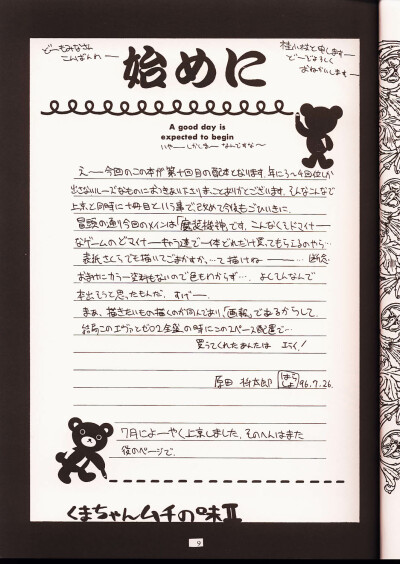 どーもみなさん
こんばんわー
桂小枝と申しますー
どーぞよろしく
おねがいしますー
始めに
A good day is
expected to begin
いやーしかしまー なんですな〜
えー今回のこの本が第十回目の配本となります。年に3〜4回位しか
出さないルーズなものにおつきあい下さりまことにありがとうございます。そんなこんなで
上京と同時に十冊目という事で、改めて今後もごひいきに。
冒頭の通り今回のメインは「魔装機神」です。こんなくそどマイナー
なゲームのどマイナーキャラ達で一体どれだけ買ってもらえるのやら…
表紙さくらでも描いてごまかすか、…って描けねーーー…断念
おまけにカラー資料もないので色もわからず…。よくそんなんで
本出そうと思ったもんだ。すげーー。
まぁ、描きたいもの描くのが同人であり、「画報」であるからして。
結局このエヴァとゼロ2全盛の時にこの2ページ配置で…
買ってくれたあんたは エライ!
原田 将太郎 はらしょ 96.7.26.
7月によーやく上京しました。そのへんはまた
後のページで。
くまちゃんムチの味II
9